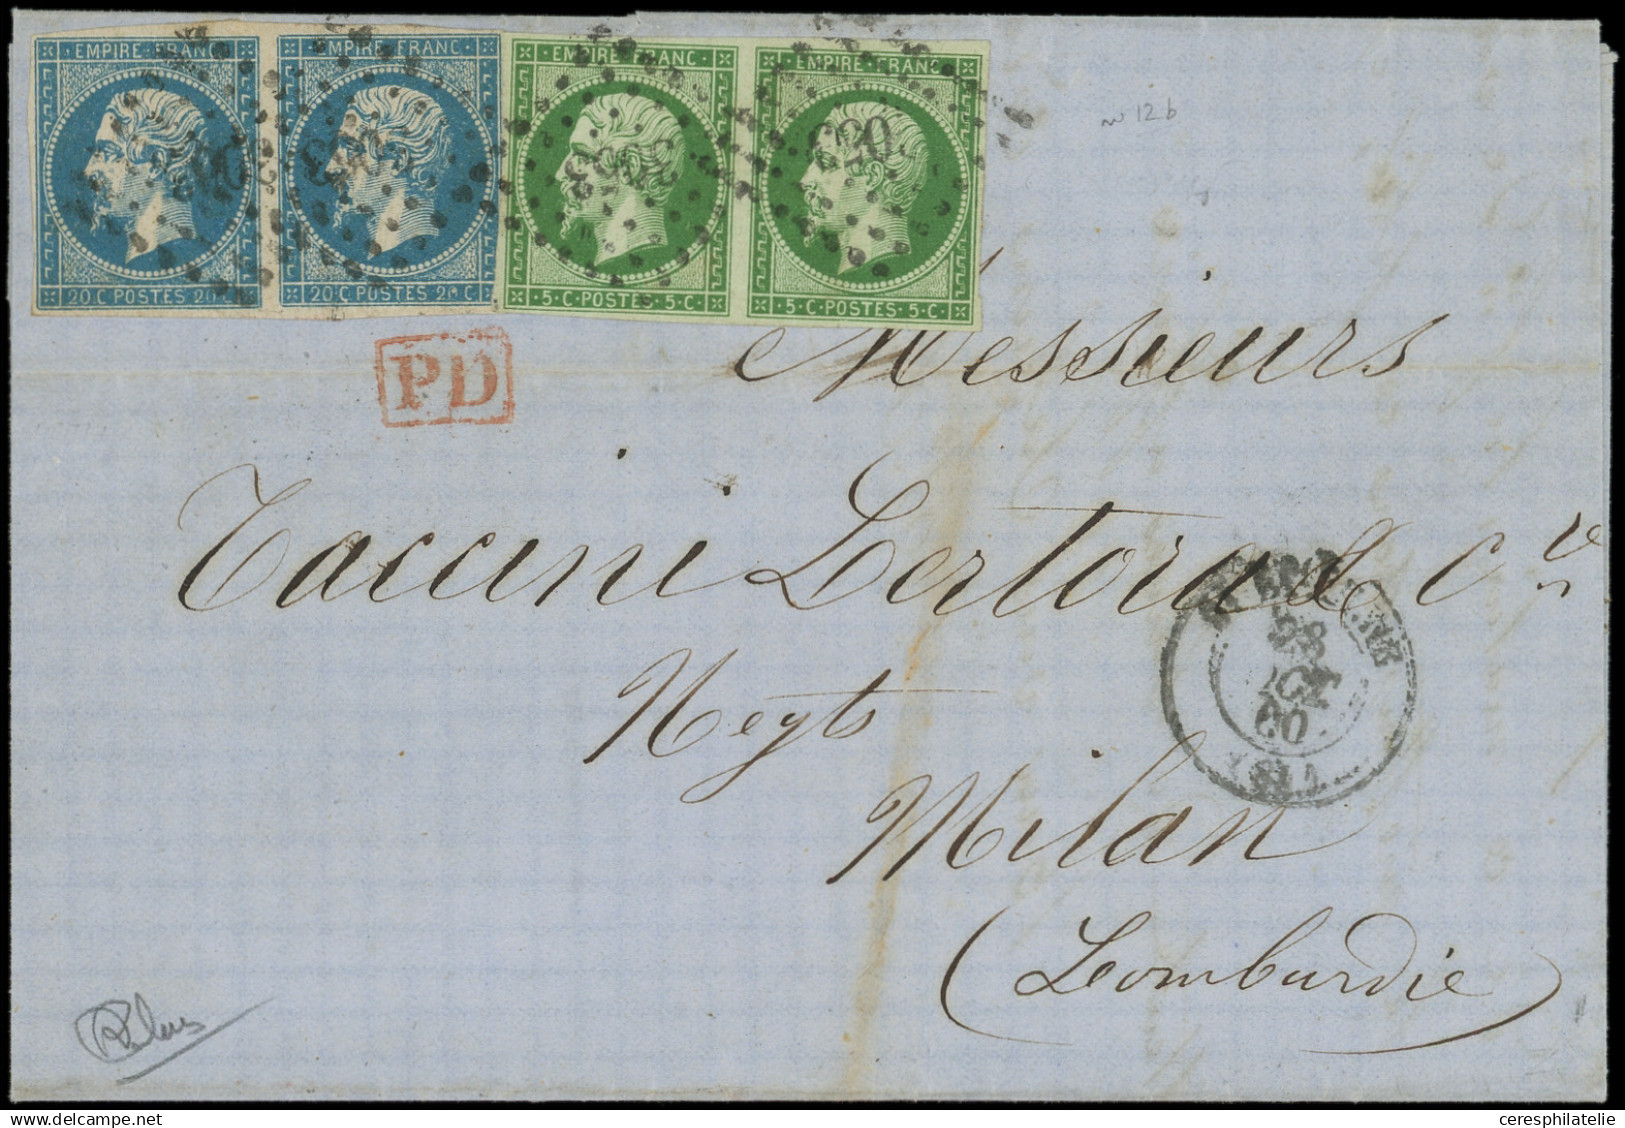 EMPIRE FRANC EMPIRE FRANC EMPIRE FRANC EMPIRE FRANC
20 C POSTES 20 20 C POSTES 20 C 5 C POSTES 5 C 5 C POSTES 5 C
n° 12 b
PD
Messieurs
Taccini Lertora & Cie
Negts
Milan
(Lombardie)
28
OCT
60
ceresphilatelie